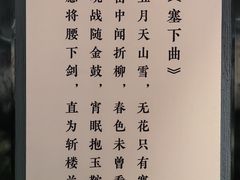 《塞下曲》
五月天山雪，无花只有寒
笛中闻折柳，春色未曾看
晓战随金鼓，宵眠抱玉鞍
愿将腰下剑，直为斩楼兰